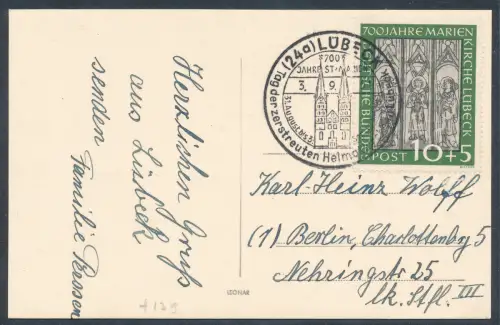 Herzlichen Gruß
aus Lübeck
senden
Familie
(24a) LÜBECK
700
JAHRE ST.
3. 9.
Tag der zerstreuten
700 JAHRE MARIEN
KIRCHE LÜBECK
DEUTSCHE BUNDES
POST 10+5
Karl-Heinz Wolff
(1) Berlin, Charlottenburg 5
Nehringstr 25
lk. Stfl. III
LEONAR